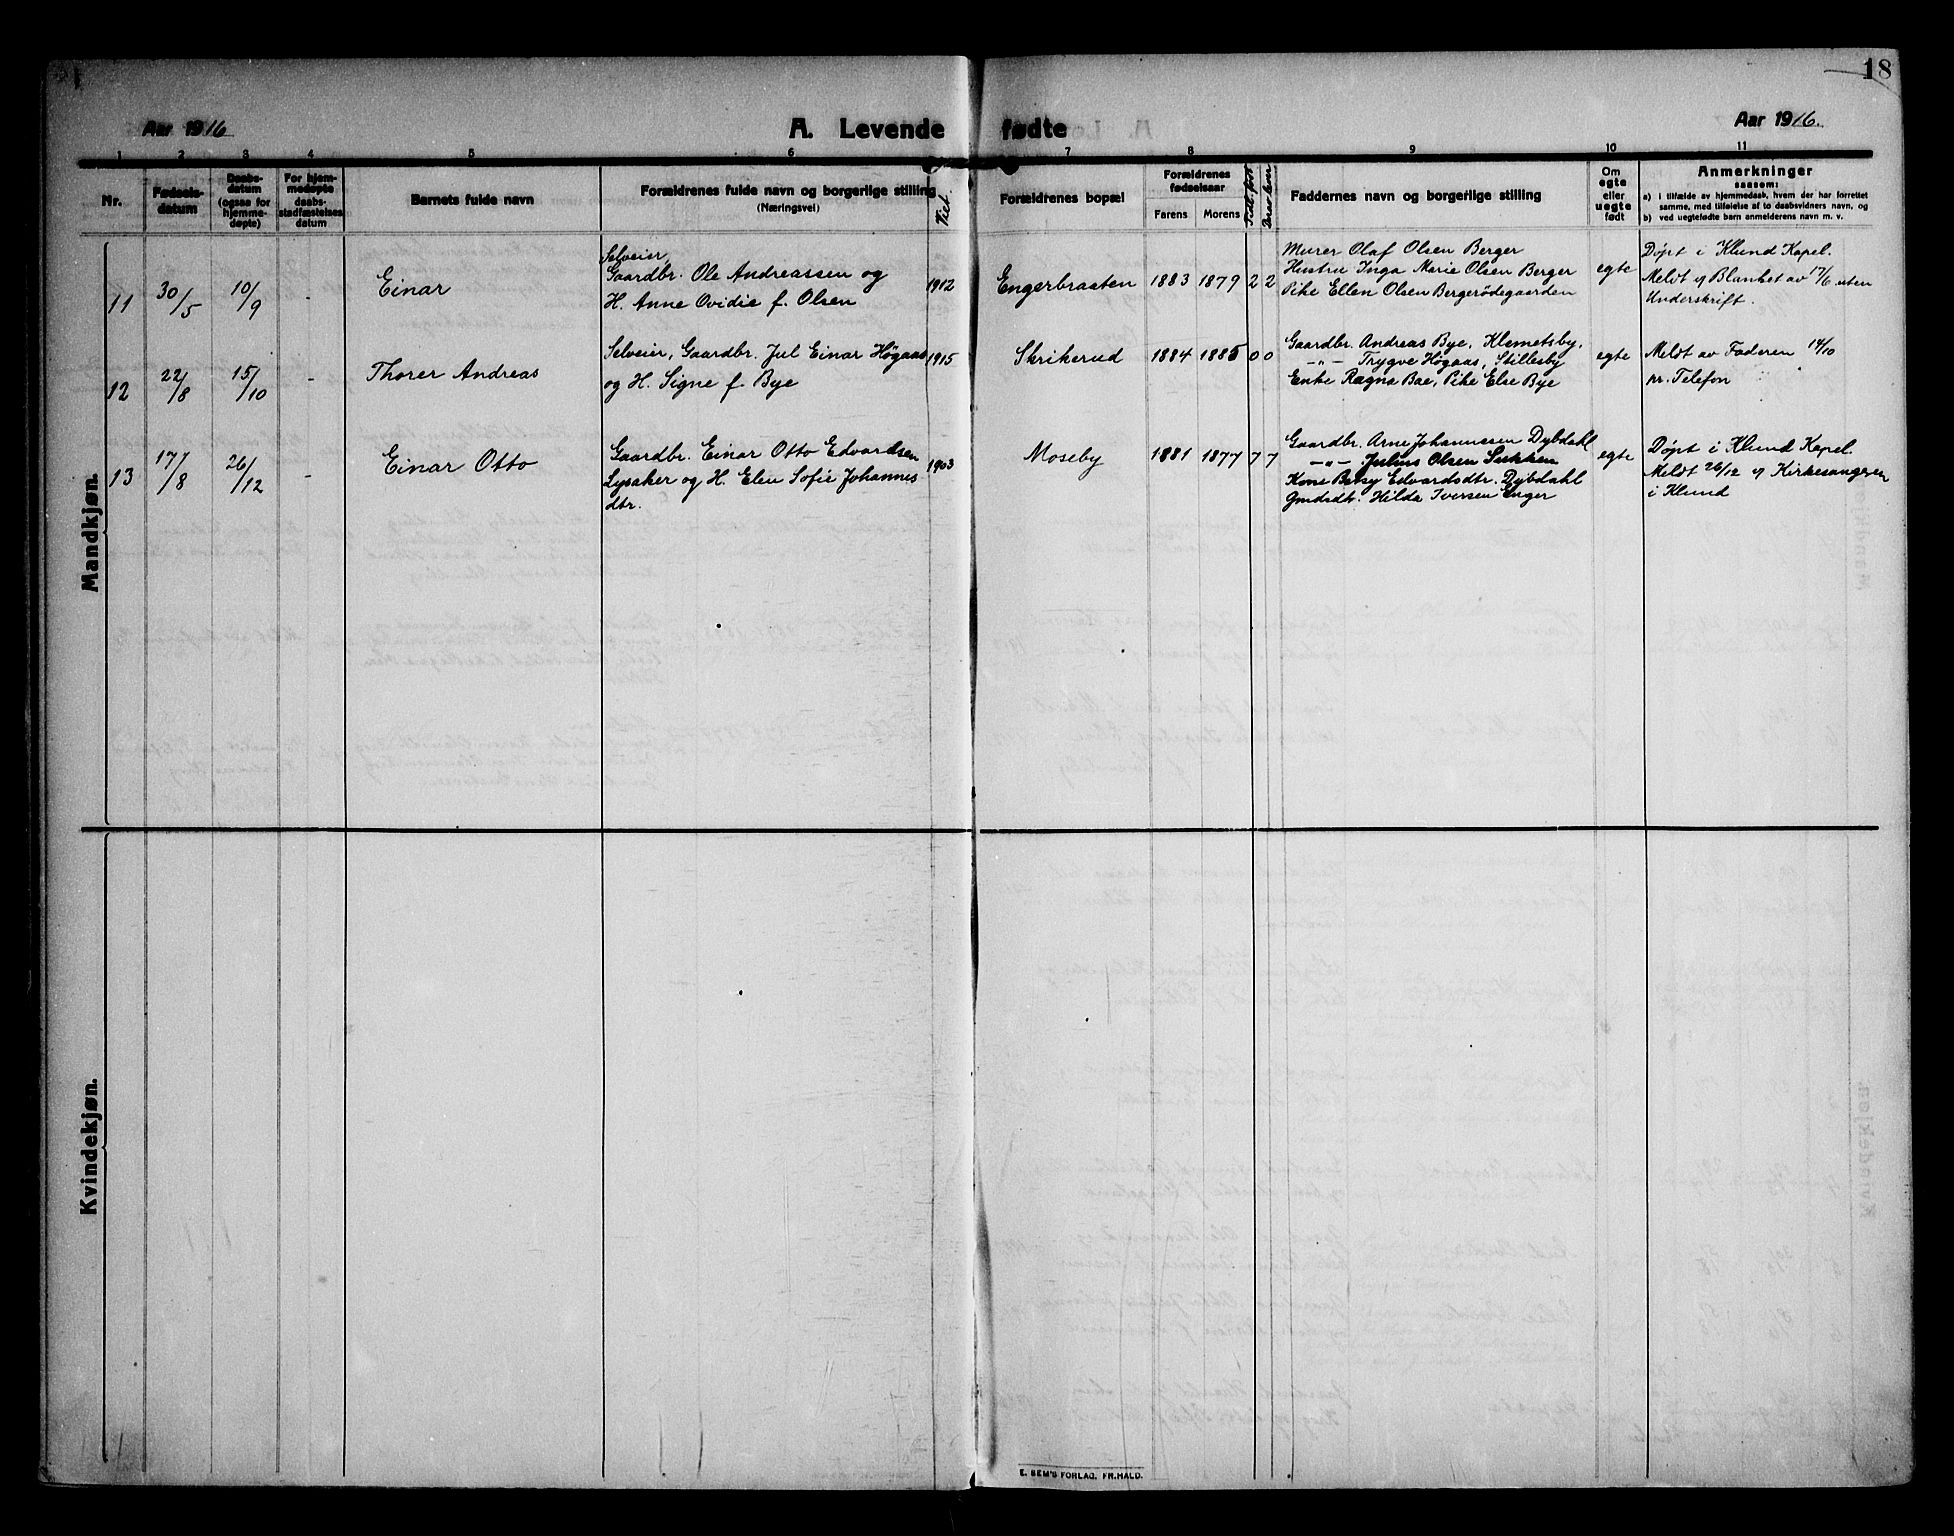 18
Aar 1916
A. Levende fødte
Aar 1916.
1 2 3 4 5 6 7 8 9 10 11
Nr.
Fødsels-
datum
Daabs-
datum
(ogsaa for
hjemme-
døpte)
For hjem-
medøpte
daabs-
stadfæstelses
datum
Barnets fulde navn
Forældrenes fulde navn og borgerlige stilling
(Næringsvei)
Viet.
Forældrenes bopæl
Forældrenes
fødselsaar
Farens
Morens
Faddernes navn og borgerlige stilling
Om
egte
eller
uegte
født
Anmerkninger
saasom:
a) i tilfælde av hjemmedaab, hvem der har forrettet
samme, med tilføielse af to daabsvidners navn, og
b) ved uegtefødte barn anmelderens navn m. v.
Mandkjøn.
11
30/5
10/9
-
Einar
Selveier,
Gaardbr. Ole Andreassen og
H. Anne Ovidie f. Olsen
1912
Engerbraaten
1883
1879
2
2
Murer Olaf Olsen Berger
Hustru Inga Marie Olsen Berger
Pike Ellen Olsen Bergerødegaarden
egte
Døpt i Klund Kapel.
Meldt v/ Blanket av 17/6 uten
Underskrift.
12
22/8
15/10
-
Thorer Andreas
Selveier, Gaardbr. Jul Einar Høgaas
og H. Signe f. Bye
1915
Skrikerud
1884
1885
0
0
Gaardbr. Andreas Bye, Klemetsby,
-"- Trygve Høgaas, Stillesby
Enke Ragna Boe, Pike Else Bye
egte
Meldt av Faderen 14/10
pr. Telefon
13
17/8
26/12
-
Einar Otto
Gaardbr. Einar Otto Edvardsen
Lysaker og H. Elen Sofie Johannes
dtr.
1903
Moseby
1881
1877
7
7
Gaardbr. Arne Johannessen Dybdahl
-"- Julius Olsen Sukken
Kone Betsy Edvardsdtr. Dybdahl
Gmdsdtr. Hilda Iversen Enger
egte
Døpt i Klund Kapel.
Meldt 26/12 v/ Kirkesangeren
i Klund
Kvindekjøn.
E. SEM'S FORLAG, FR.HALD.